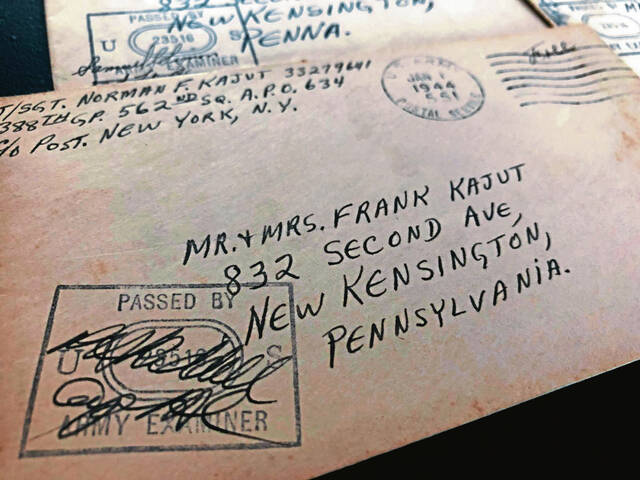 PASSED BY
832
NEW KENSINGTON,
PENNA.
U 23516
ARMY EXAMINER
T/SGT. NORMAN F. KAJUT 33279641
388TH GP. 562ND SQ. A.P.O. 634
C/O POST. NEW YORK, N.Y.
U.S. ARMY
JAN
1944
POSTAL SERVICE
Free
MR. & MRS. FRANK KAJUT
832 SECOND AVE,
NEW KENSINGTON,
PENNSYLVANIA.
PASSED BY
U S
ARMY EXAMINER